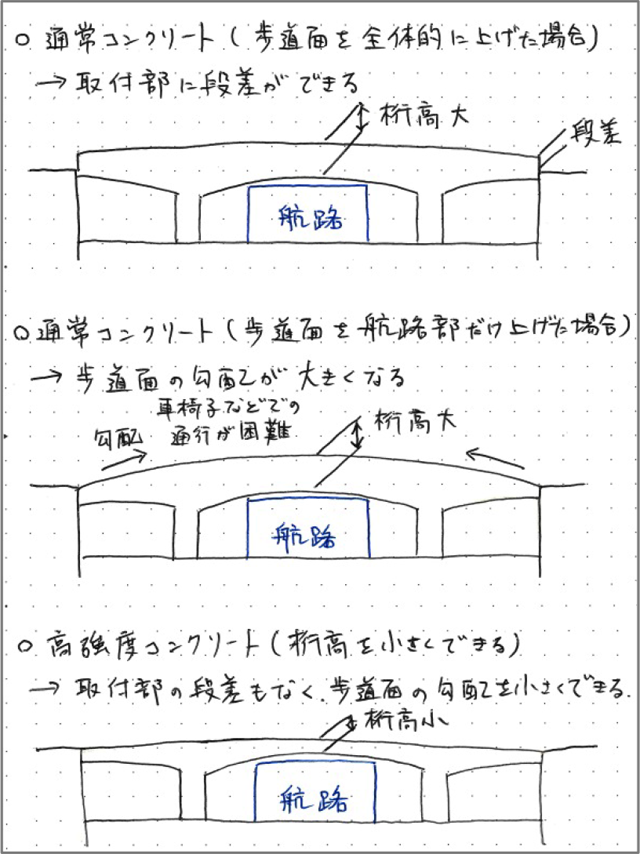 ○ 通常コンクリート(歩道面を全体的に上げた場合)
→ 取付部に段差ができる
桁高大
段差
航路
○ 通常コンクリート(歩道面を航路部だけ上げた場合)
→ 歩道面の勾配が大きくなる
車椅子などでの
勾配 通行が困難
桁高大
航路
○ 高強度コンクリート(桁高を小さくできる)
→ 取付部の段差もなく、歩道面の勾配を小さくできる.
桁高小
航路